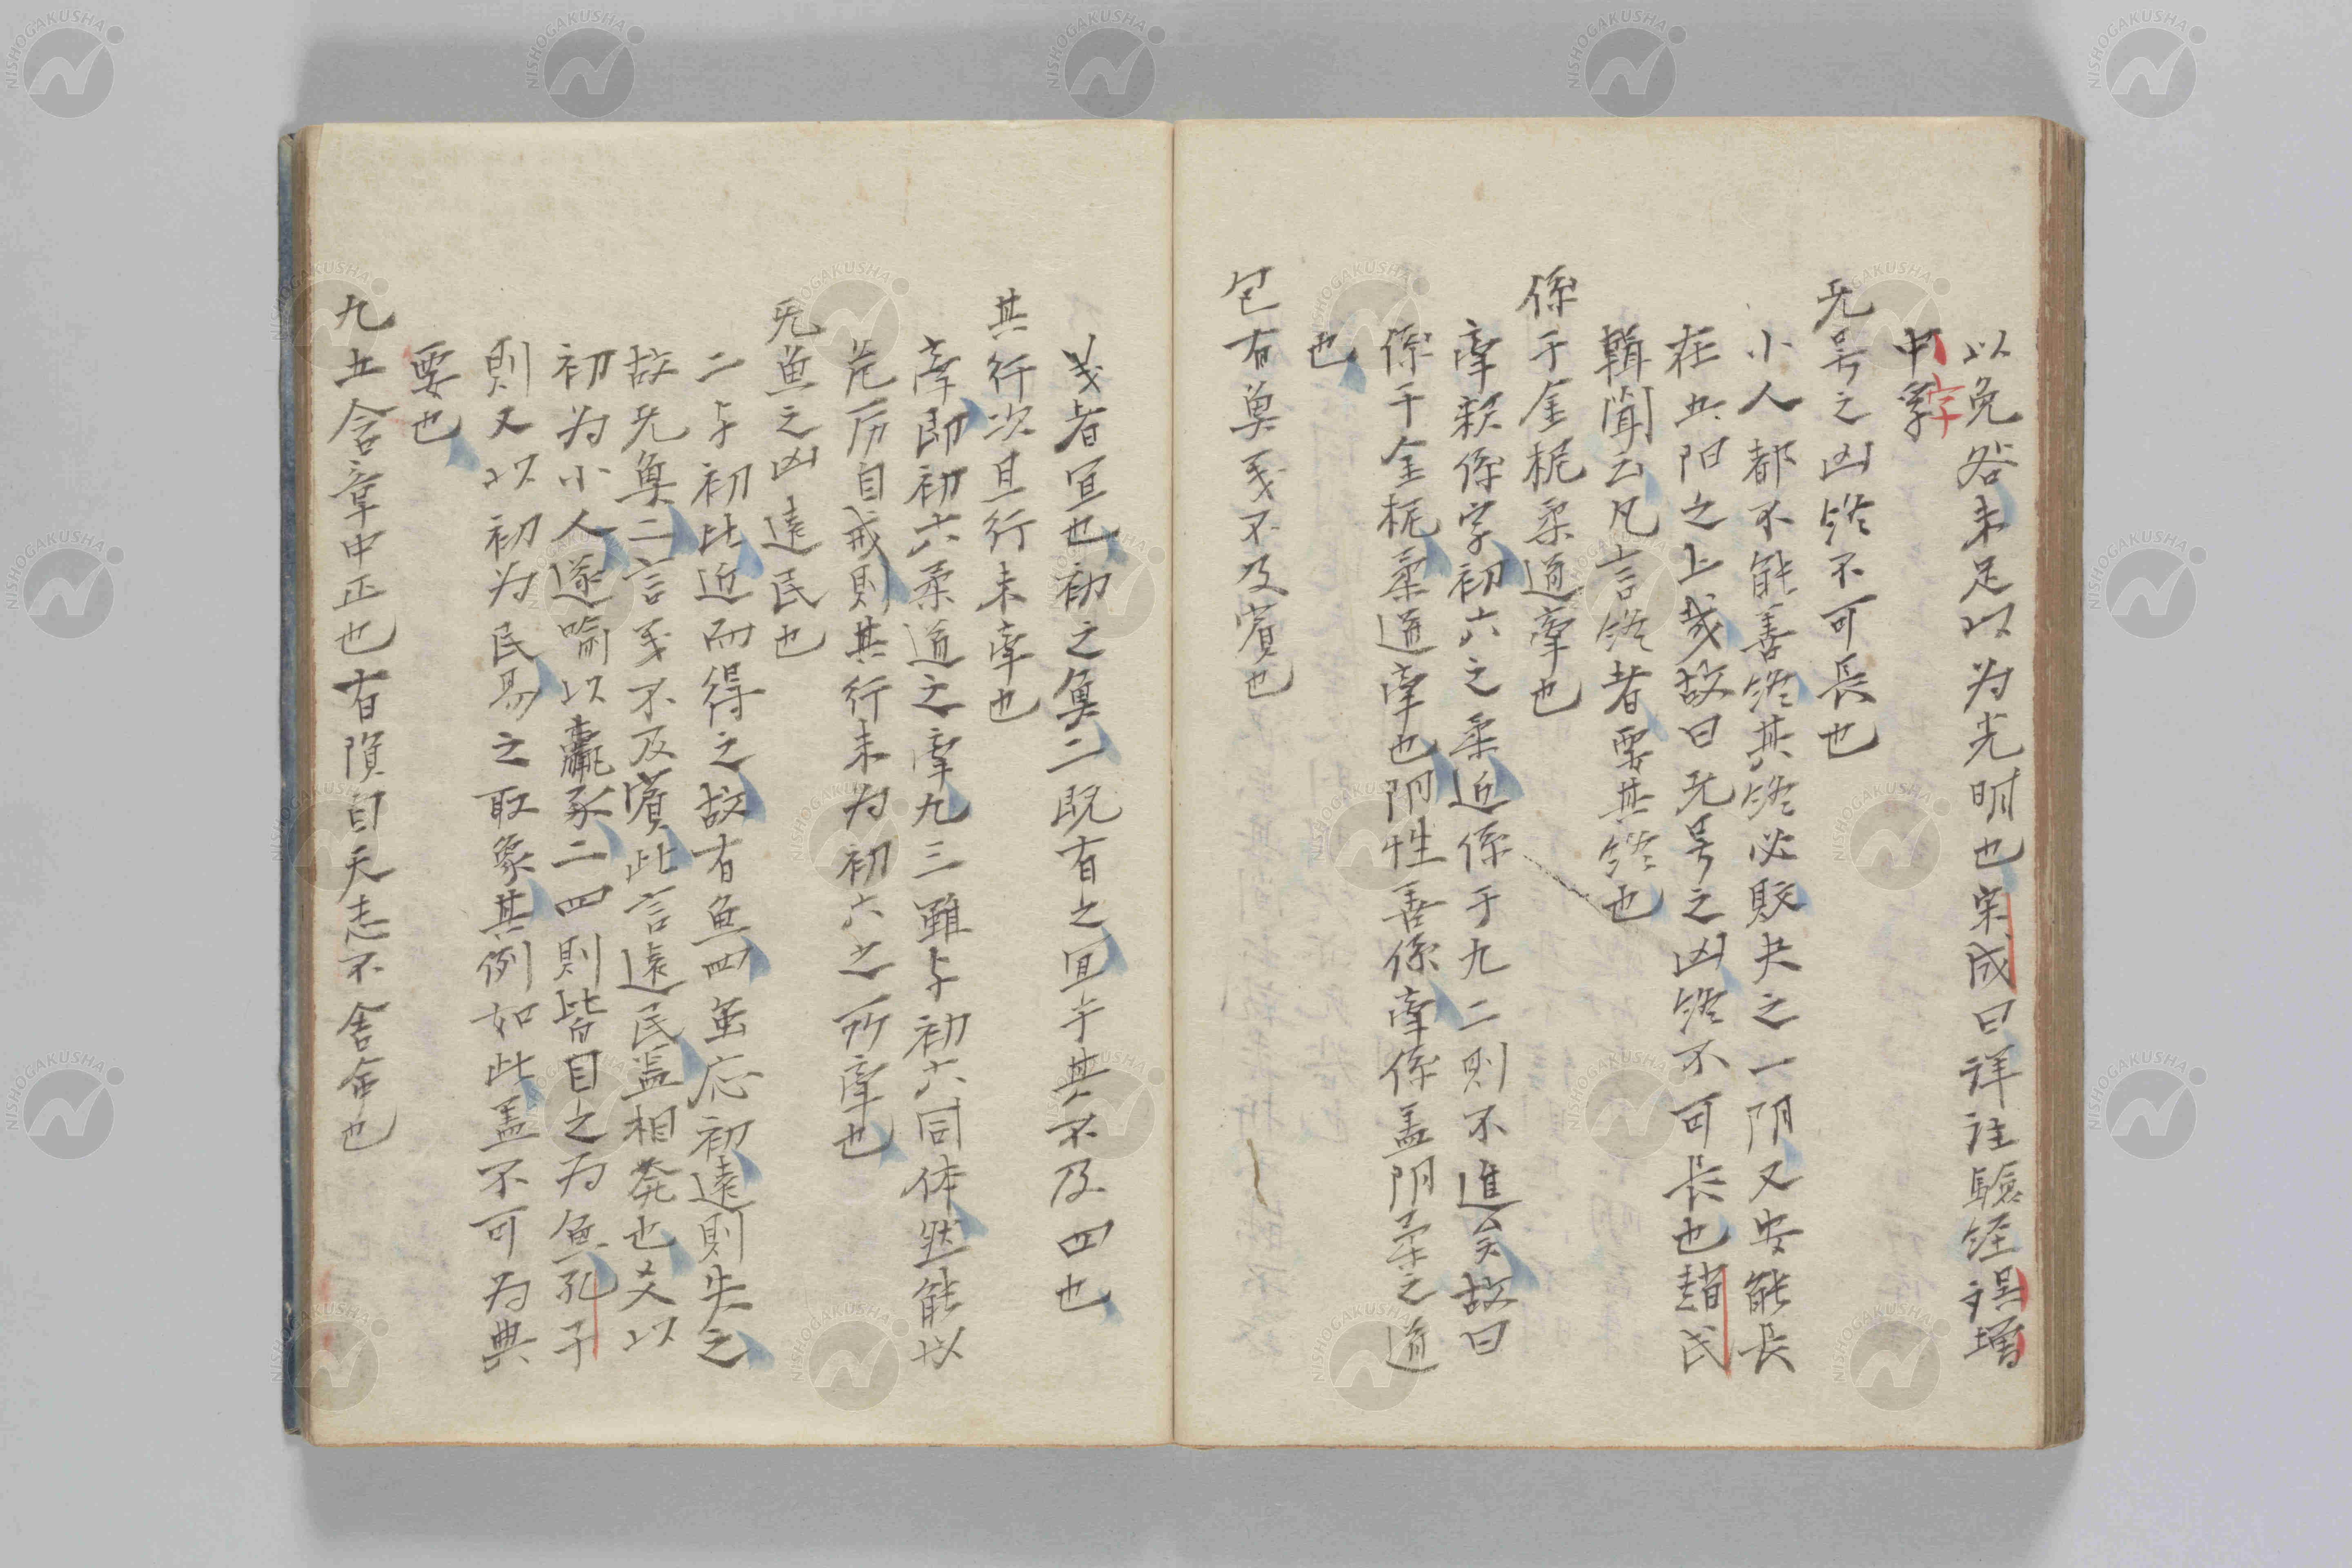 以免咎未足以为光明也宋咸曰详注验经误增
中字
无号之凶终不可長也
小人都不能善终其终必敗夬之一阴又安能長
在五阳之上哉故曰无号之凶终不可長也趙氏
輯聞云凡言终者要其终也
係于金柅柔道牽也
牽釈係字初六之柔近係于九二則不進矣故曰
係于金柅柔道牽也阴性善係牽係盖阴柔之道
也
包有魚义不及賓也
义者宜也初之魚二既有之宜乎其不及四也
其行次且行未牽也
牽即初六柔道之牽九三雖与初六同体然能以
危厉自戒則其行未为初六之所牽也
无魚之凶遠民也
二与初比近而得之故有魚四虽応初遠則失之
故无魚二言义不及賓此言遠民盖相発也爻以
初为小人遂喻以羸豕二四則皆目之为魚孔子
則又以初为民易之取象其例如此盖不可为典
要也
九五含章中正也有隕自天志不舍命也
NISHOGAKUSHA